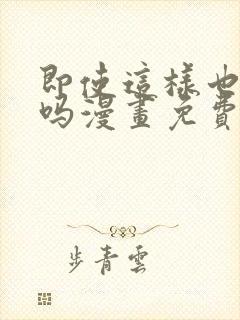 即使這樣也
嗎漫畫免費
步青雲